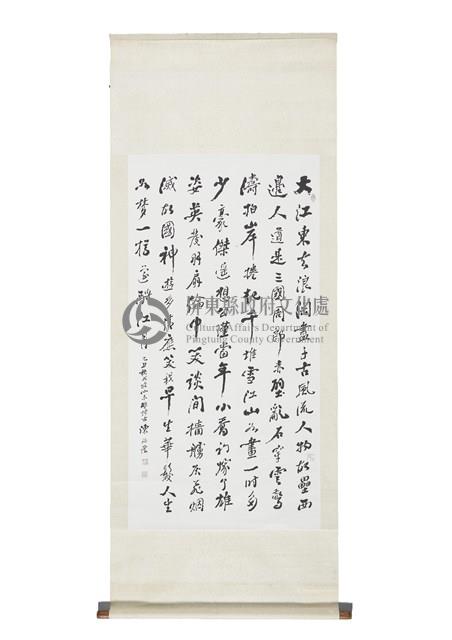 大江東去浪淘盡千古風流人物故壘西
邊人道是三國周郎赤壁亂石穿雲驚
濤拍岸捲起千堆雪江山如畫一時多
少豪傑遙想公瑾當年小喬初嫁了雄
姿英發羽扇綸巾笑談間檣艣灰飛煙
滅故國神遊多情應笑我早生華髮人生
如夢一樽還酹江月
屏東縣政府文化處
Cultural Affairs Department of
Pingtung County Government